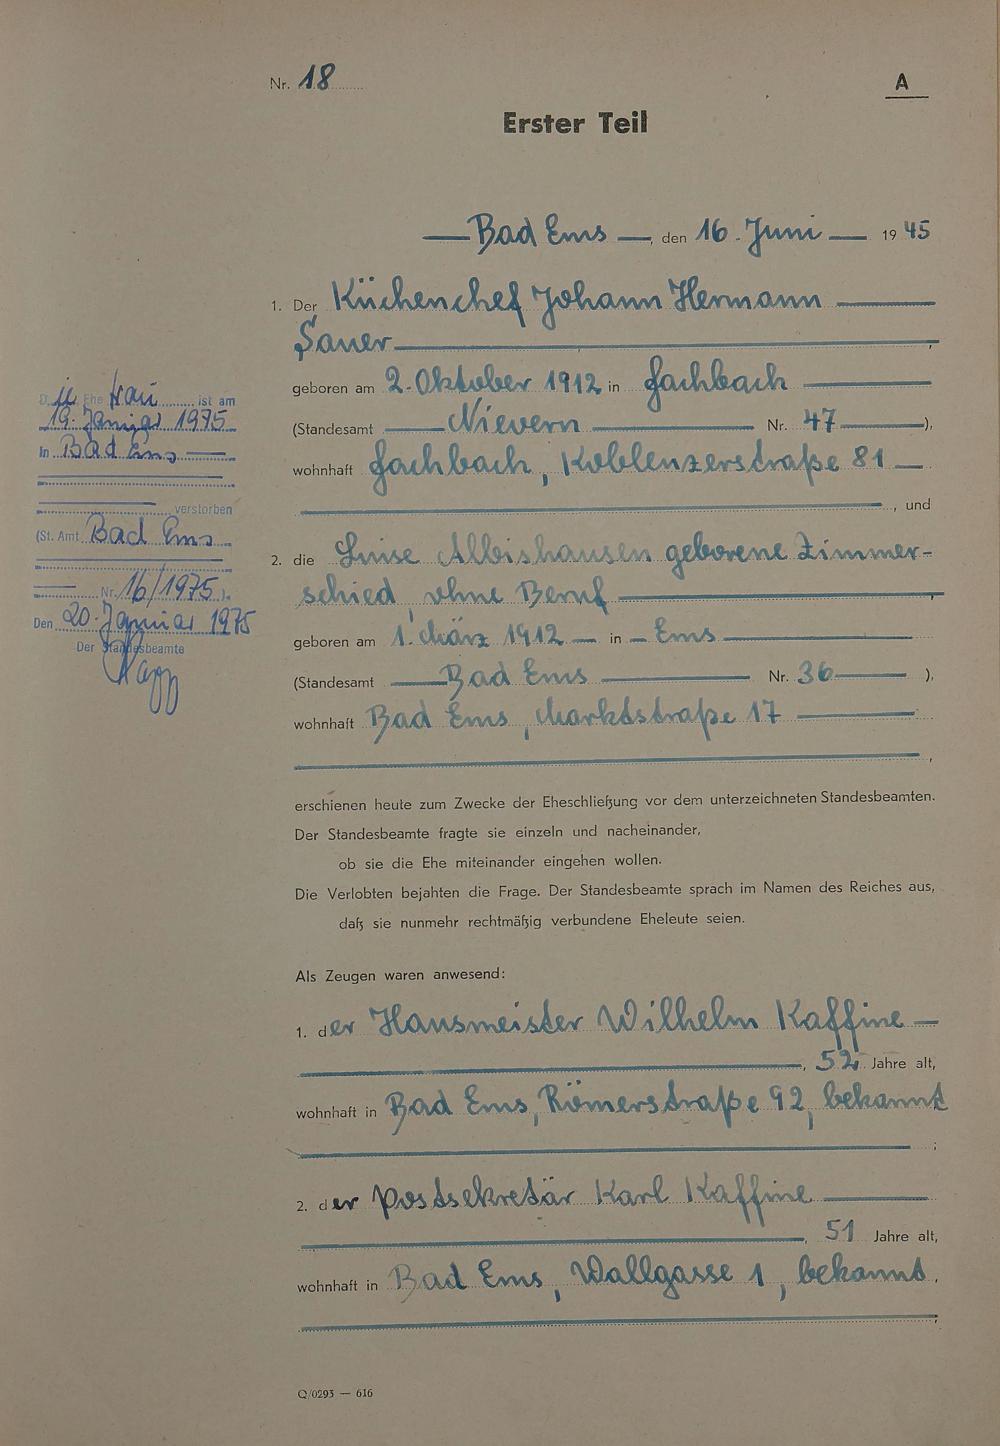 Nr. 18
A
Erster Teil
Bad Ems, den 16. Juni 1945
1. Der Küchenchef Johann Hermann
Sauer,
geboren am 2. Oktober 1912 in Fachbach
(Standesamt Nievern Nr. 47),
wohnhaft Fachbach, Koblenzerstraße 81
, und
2. die Luise Albishausen geborene Zimmer-
schied, ohne Beruf
geboren am 1. März 1912 in Ems
(Standesamt Bad Ems Nr. 36),
wohnhaft Bad Ems, Marktstraße 17
,
erschienen heute zum Zwecke der Eheschließung vor dem unterzeichneten Standesbeamten.
Der Standesbeamte fragte sie einzeln und nacheinander,
ob sie die Ehe miteinander eingehen wollen.
Die Verlobten bejahten die Frage. Der Standesbeamte sprach im Namen des Reiches aus,
daß sie nunmehr rechtmäßig verbundene Eheleute seien.
Als Zeugen waren anwesend:
1. der Hausmeister Wilhelm Kaffine
, 52 Jahre alt,
wohnhaft in Bad Ems, Römerstraße 92, bekannt
;
2. der Postsekretär Karl Kaffine
, 51 Jahre alt,
wohnhaft in Bad Ems, Wallgasse 1, bekannt.
Q/0293 — 616
Die Ehefrau ist am
19. Januar 1975
in Bad Ems
verstorben
(St. Amt Bad Ems
Nr. 16/1975).
Den 20. Januar 1975
Der Standesbeamte